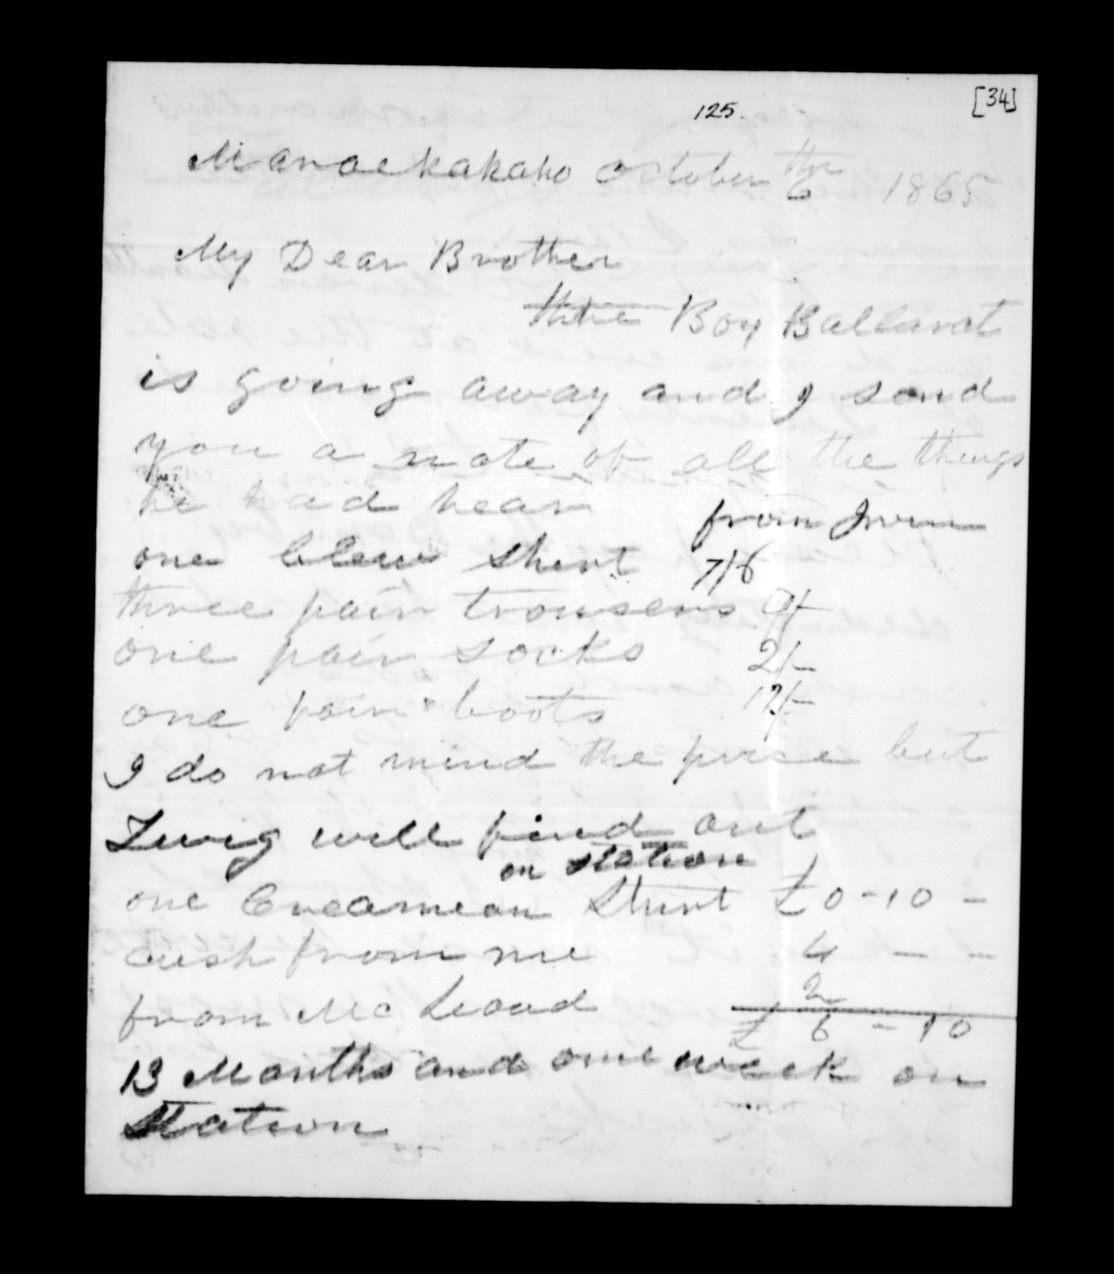 [34]
125.
Maraekakaho October 6th 1865
My Dear Brother
thhe Boy Ballarat
is going away and I send
you a note of all the things
he had hear from Irvin
one blew Shirt 7/6
three pair trousers 9/-
one pair socks 2/-
one pair boots 12/-
I do not mind the prise but
will find out
on station
one Creamean Shirt £0-10-
cash from me 4 - -
from Mc Leoud 2
£ 6 - 10
13 Months and one week on
Station